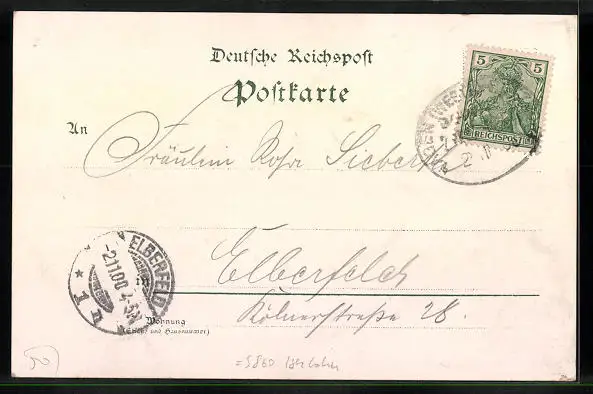 Deutsche Reichspost
Postkarte
5 5
REICHSPOST
An
Fräulein Rosa Siebert
Elberfeld
Kölnerstraße 28.
ELBERFELD
-2.11.00. 4-5N
* 1 n
Wohnung
(Straße und Hausnummer)
50
=5860